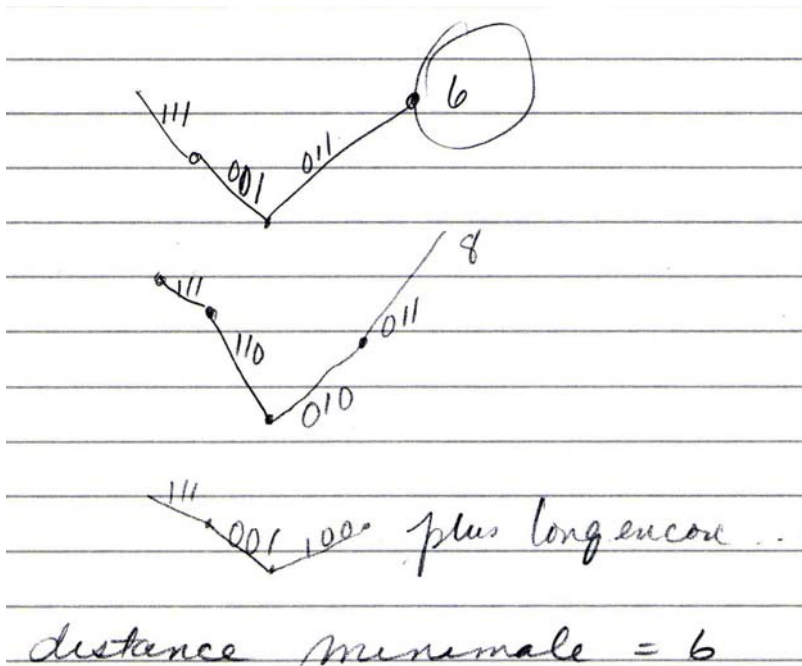 111 001 011 6
8
111 011
110
010
111 001 100 plus long encore ..
distance minimale = 6